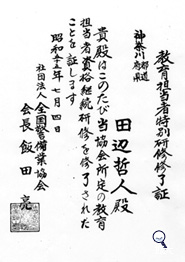 教育担当者特別研修修了証
神奈川 都道府県
田辺哲人殿
貴殿はこのたび当協会所定の教育
担当者資格継続研修を修了された
ことを証します
昭和五十五年七月四日
社団法人全国警備業協会
会長飯田亮